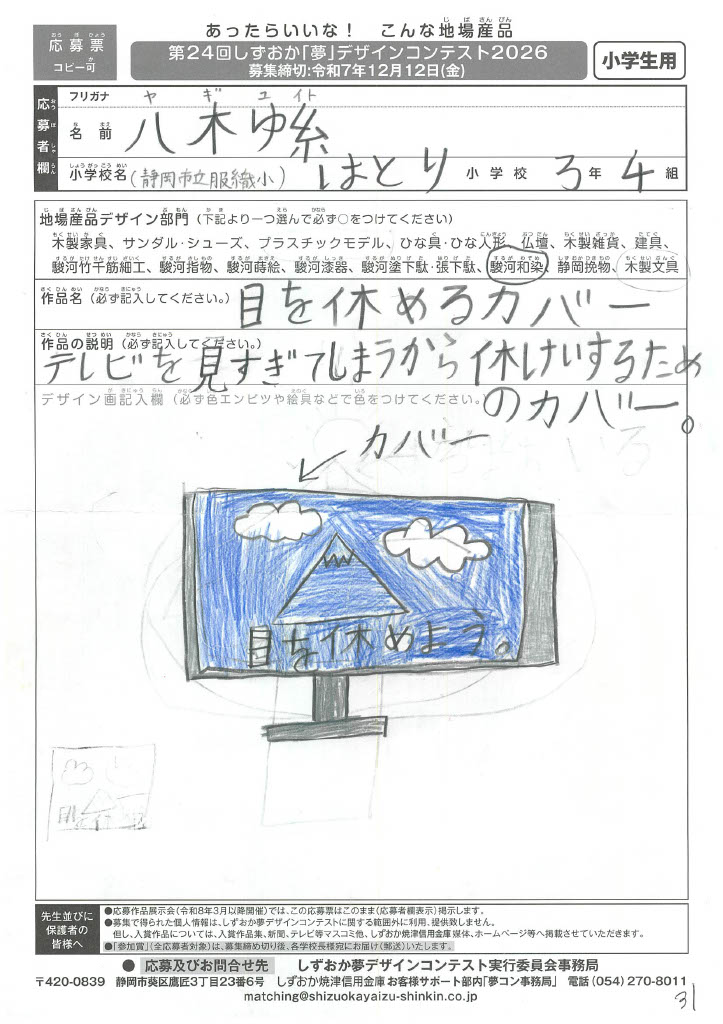 応募票
コピー可
あったらいいな！ こんな地場産品
第24回しずおか「夢」デザインコンテスト2026
募集締切:令和7年12月12日(金)
小学生用
応募者欄
フリガナ ヤギ ユイト
名前 八木ゆ糸
小学校名 (静岡市立服織小) はとり 小学校 3年 4組
地場産品デザイン部門(下記より一つ選んで必ず○をつけてください)
木製家具、サンダル・シューズ、プラスチックモデル、ひな具・ひな人形、仏壇、木製雑貨、建具、
駿河竹千筋細工、駿河指物、駿河蒔絵、駿河漆器、駿河塗下駄・張下駄、駿河和染、静岡挽物、木製文具
作品名(必ず記入してください。) 目を休めるカバー
作品の説明(必ず記入してください。)
テレビを見すぎてしまうから休けいするため
のカバー。
デザイン画記入欄(必ず色エンピツや絵具などで色をつけてください。)
カバー
目を休めよう。
先生並びに
保護者の
皆様へ
●応募作品展示会(令和8年3月以降開催)では、この応募票はこのまま(応募者欄表示)掲示します。
●募集で得られた個人情報は、しずおか夢デザインコンテストに関する範囲外に利用、提供致しません。
但し、入賞作品については、入賞作品集、新聞、テレビ等マスコミ他、しずおか焼津信用金庫媒体、ホームページ等へ掲載させていただきます。
●「参加賞」(全応募者対象)は、募集締め切り後、各学校長様宛にお届け(郵送)いたします。
● 応募及びお問合せ先 しずおか夢デザインコンテスト実行委員会事務局
〒420-0839 静岡市葵区鷹匠3丁目23番6号 しずおか焼津信用金庫 お客様サポート部内「夢コン事務局」 電話(054)270-8011
matching@shizuokayaizu-shinkin.co.jp
31